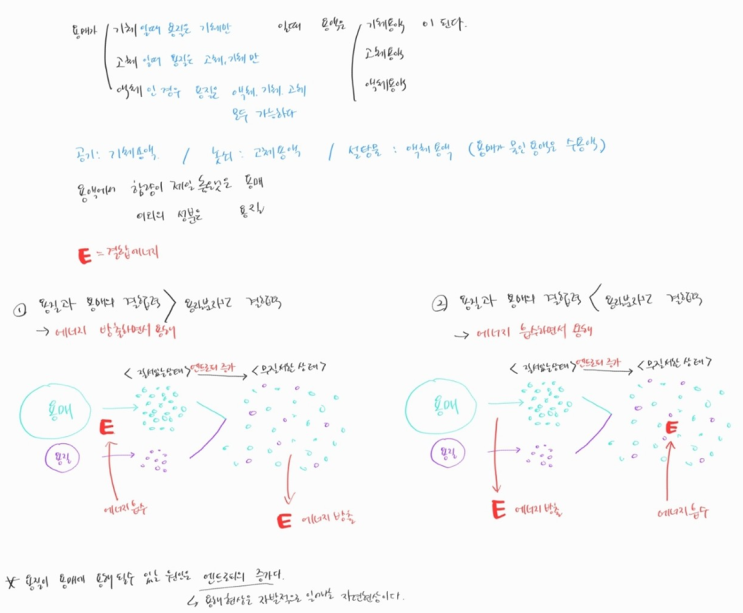 용매가 기체 일때 용질은 기체만 일때 용액은 기체용액 이 된다.
고체 일때 용질은 고체, 기체만 고체용액
액체 인 경우 용질은 액체, 기체, 고체 액체용액
모두 가능하다
공기: 기체용액 / 놋쇠: 고체용액 / 설탕물: 액체용액 (용매가 물인 용액은 수용액)
용액에서 함량이 제일 높은것은 용매
이외의 성분은 용질
E = 결합에너지
① 용질과 용매의 결합력 > 용질분자간 결합력
→ 에너지 방출하면서 용해
<질서있는상태> 엔트로피 증가 <무질서한 상태>
용매
E
용질
에너지 흡수
E 에너지 방출
② 용질과 용매의 결합력 < 용질분자간 결합력
→ 에너지 흡수하면서 용해
<질서있는상태> 엔트로피 증가 <무질서한 상태>
용매
E
용질
E 에너지 방출
에너지 흡수
* 용질이 용매에 용해 될수 있는 원인은 엔트로피의 증가다.
↳ 용해현상은 자발적으로 일어나는 자연현상이다.